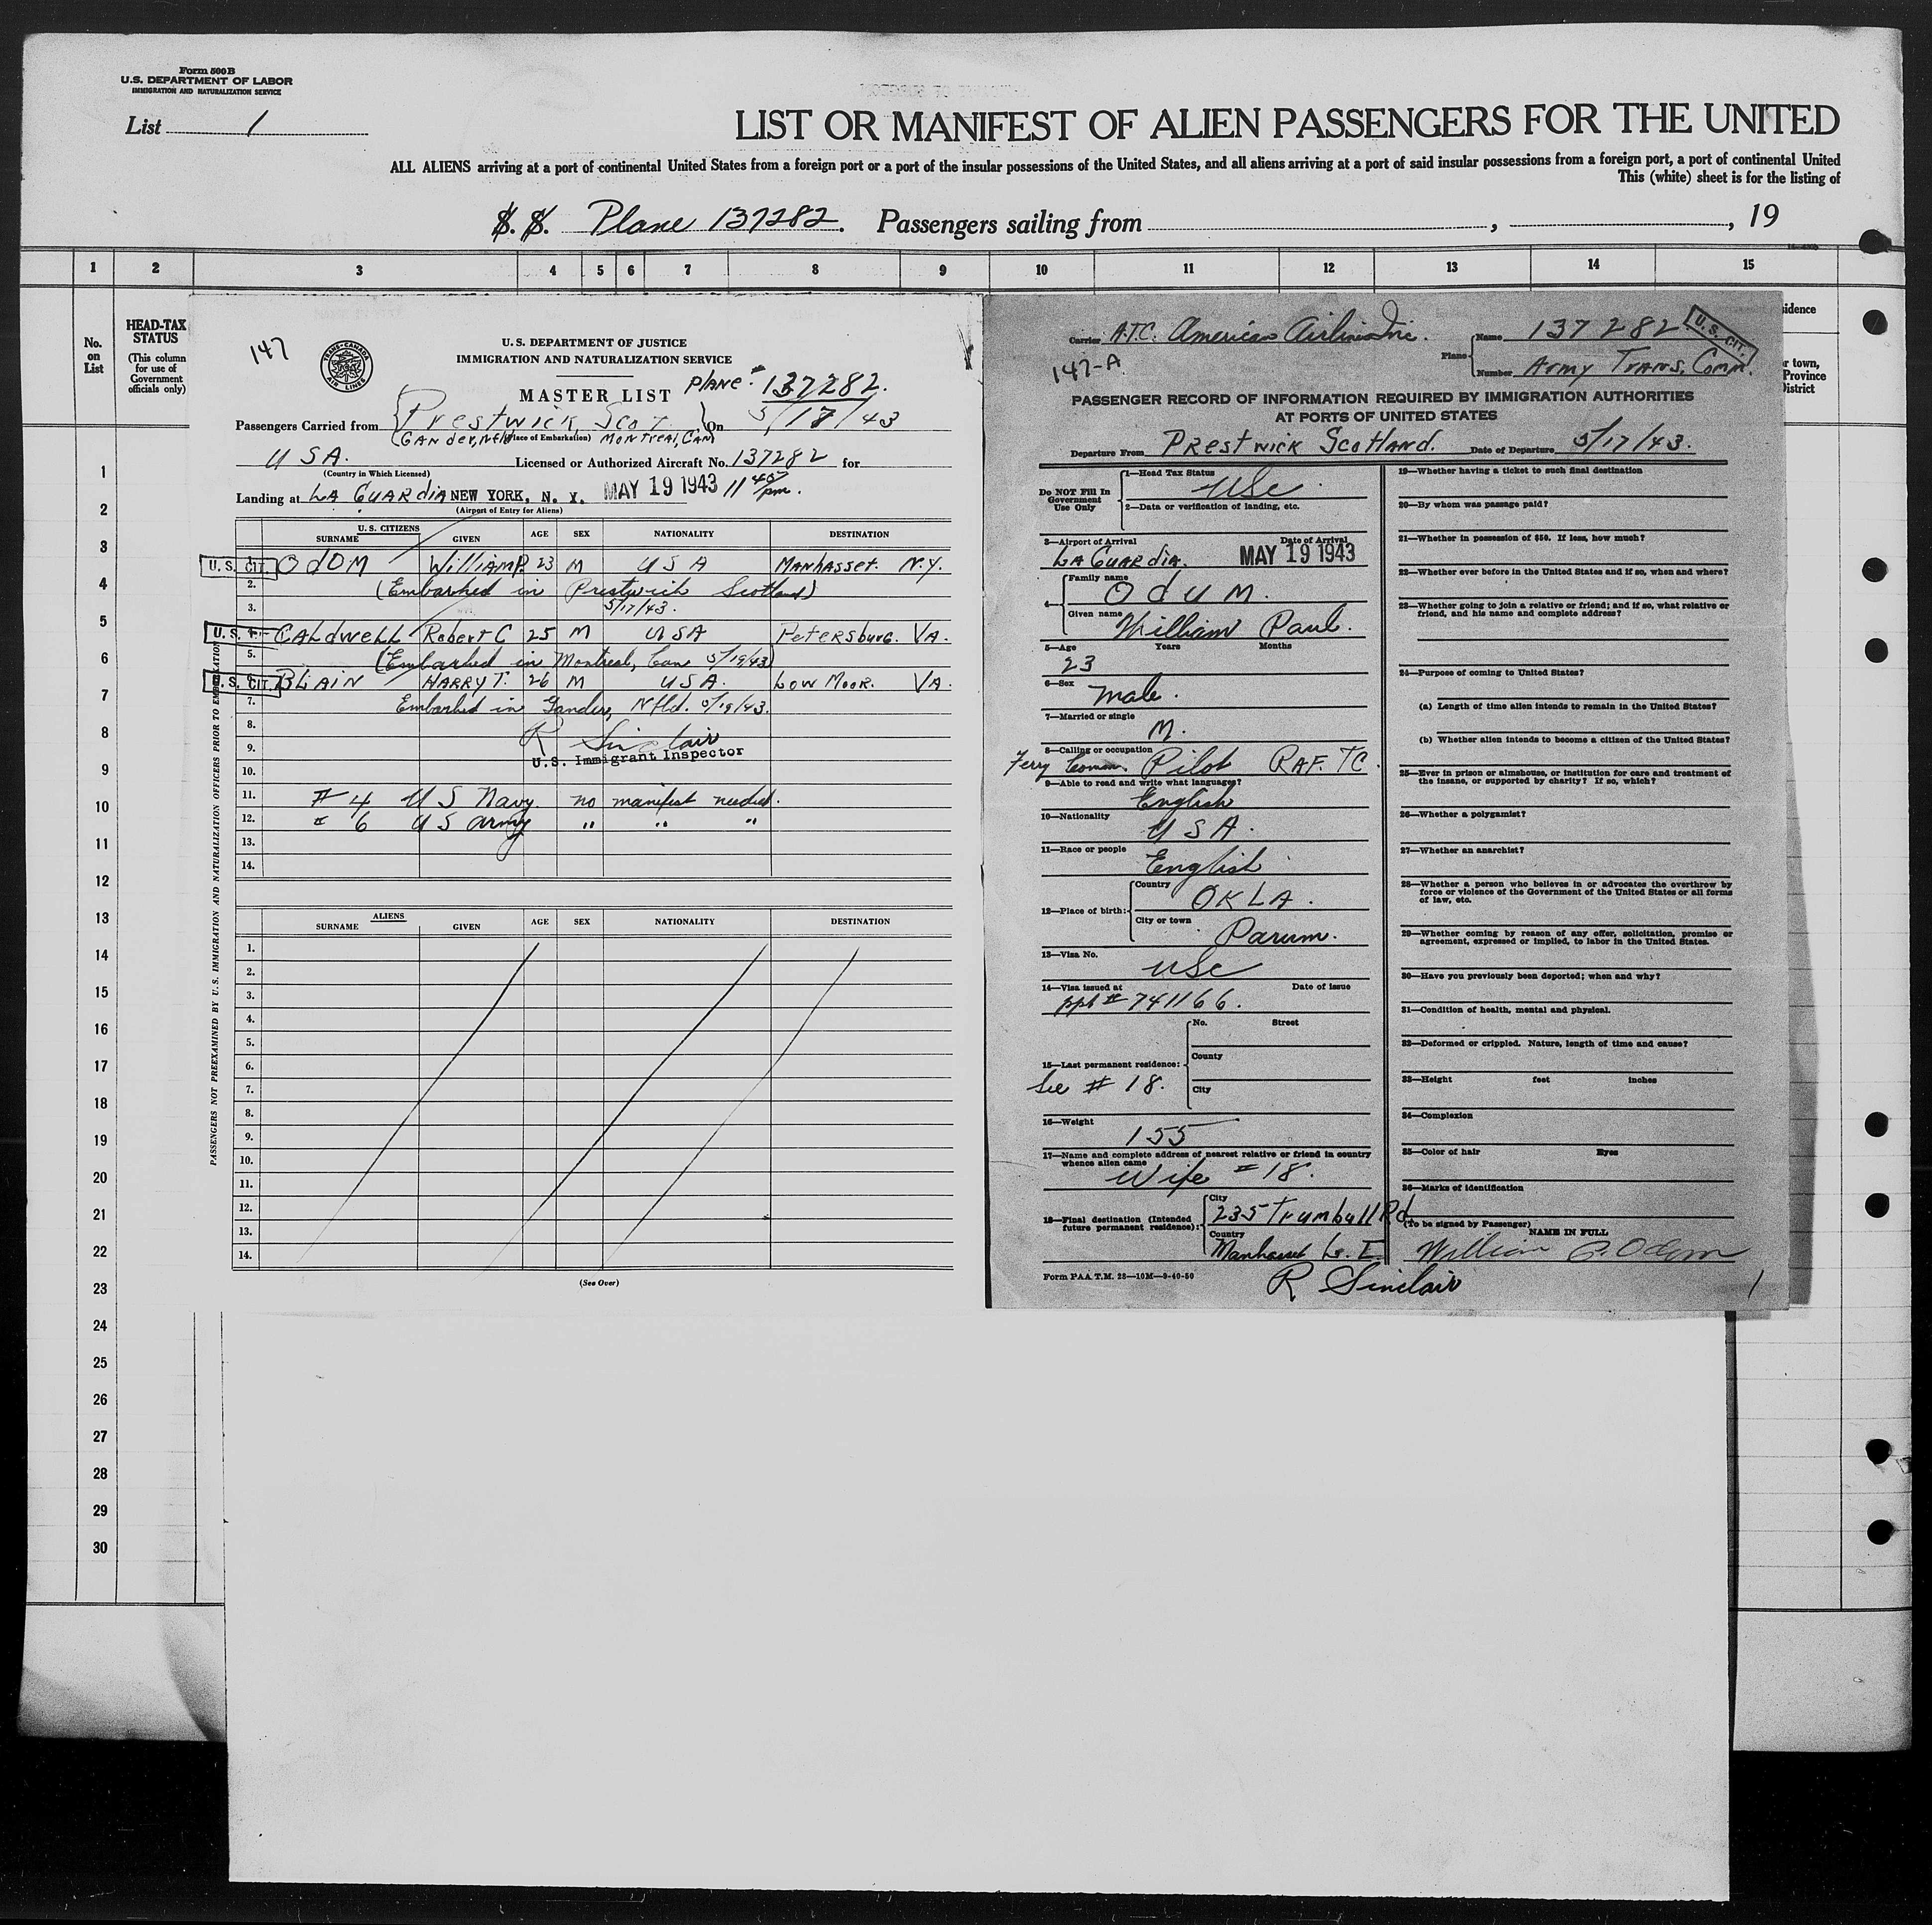 Form 500B
U.S. DEPARTMENT OF LABOR
IMMIGRATION AND NATURALIZATION SERVICE
List 1
LIST OR MANIFEST OF ALIEN PASSENGERS FOR THE UNITED
ALL ALIENS arriving at a port of continental United States from a foreign port or a port of the insular possessions of the United States, and all aliens arriving at a port of said insular possessions from a foreign port, a port of continental United
This (white) sheet is for the listing of
S. S. Plane 137282. Passengers sailing from , , 19
1 2 3 4 5 6 7 8 9 10 11 12 13 14 15
No. on List
HEAD-TAX STATUS
(This column for use of Government officials only)
idence
r town,
Province
District
1
2
3
4
5
6
7
8
9
10
11
12
13
14
15
16
17
18
19
20
21
22
23
24
25
26
27
28
29
30
147
TRANS-CANADA AIR LINES
U. S. DEPARTMENT OF JUSTICE
IMMIGRATION AND NATURALIZATION SERVICE
MASTER LIST Plane - 137282.
Passengers Carried from Prestwick, Scot. On 5/17/43
(Gander, Nfld (Place of Embarkation) Montreal, Can)
USA. Licensed or Authorized Aircraft No. 137282 for
(Country in Which Licensed)
Landing at La Guardia NEW YORK, N. Y. MAY 19 1943 11 40 pm.
(Airport of Entry for Aliens)
U. S. CITIZENS
SURNAME GIVEN AGE SEX NATIONALITY DESTINATION
U. S. CIT. 1. Odom William P. 23 M USA Manhasset. N.Y.
2. (Embarked in Prestwick Scotland)
3. 5/17/43.
U. S. 4. Caldwell Robert C 25 M USA Petersburg. VA.
5. (Embarked in Montreal, Can 5/19/43)
U. S. CIT. 6. Blain Harry T. 26 M USA. Low Moor. VA.
7. Embarked in Gander, Nfld. 5/19/43.
8. R Sinclair
9. U.S. Immigrant Inspector
10.
11. # 4 US Navy. no manifest needed.
12. # 6 US army " " "
13.
14.
ALIENS
SURNAME GIVEN AGE SEX NATIONALITY DESTINATION
1.
2.
3.
4.
5.
6.
7.
8.
9.
10.
11.
12.
13.
14.
(See Over)
PASSENGERS NOT PREEXAMINED BY U. S. IMMIGRATION AND NATURALIZATION OFFICERS PRIOR TO EMBARKATION
Carrier A.T.C. American Airlines Inc.
147-A
Plane Name 137282
Number Army Trans. Comm.
U. S. CIT.
PASSENGER RECORD OF INFORMATION REQUIRED BY IMMIGRATION AUTHORITIES
AT PORTS OF UNITED STATES
Departure From Prestwick Scotland. Date of Departure 5/17/43.
Do NOT Fill In
Government
Use Only
1—Head Tax Status
USC.
2—Data or verification of landing, etc.
3—Airport of Arrival Date of Arrival
La Guardia. MAY 19 1943
4— Family name
Odum.
Given name
William Paul.
5—Age Years Months
23
6—Sex
Male.
7—Married or single
M.
8—Calling or occupation
Ferry Comm. Pilot RAF. TC.
9—Able to read and write what languages?
English
10—Nationality
USA.
11—Race or people
English
12—Place of birth: Country
OKLA.
City or town
Parum.
13—Visa No.
USC
14—Visa issued at Date of issue
ppt # 741166.
15—Last permanent residence: No. Street
County
City
See # 18.
16—Weight
155
17—Name and complete address of nearest relative or friend in country
whence alien came
Wife # 18.
18—Final destination (Intended
future permanent residence): City
235 Trumbull Rd
Country
Manhasset L. I.
Form PAA T.M. 28—10M—9-40-50
R Sinclair
19—Whether having a ticket to such final destination
20—By whom was passage paid?
21—Whether in possession of $50. If less, how much?
22—Whether ever before in the United States and if so, when and where?
23—Whether going to join a relative or friend; and if so, what relative or
friend, and his name and complete address?
24—Purpose of coming to United States?
(a) Length of time alien intends to remain in the United States?
(b) Whether alien intends to become a citizen of the United States?
25—Ever in prison or almshouse, or institution for care and treatment of
the insane, or supported by charity? If so, which?
26—Whether a polygamist?
27—Whether an anarchist?
28—Whether a person who believes in or advocates the overthrow by
force or violence of the Government of the United States or all forms
of law, etc.
29—Whether coming by reason of any offer, solicitation, promise or
agreement, expressed or implied, to labor in the United States.
30—Have you previously been deported; when and why?
31—Condition of health, mental and physical.
32—Deformed or crippled. Nature, length of time and cause?
33—Height feet inches
34—Complexion
35—Color of hair Eyes
36—Marks of identification
(To be signed by Passenger)
NAME IN FULL
William P. Odom
1